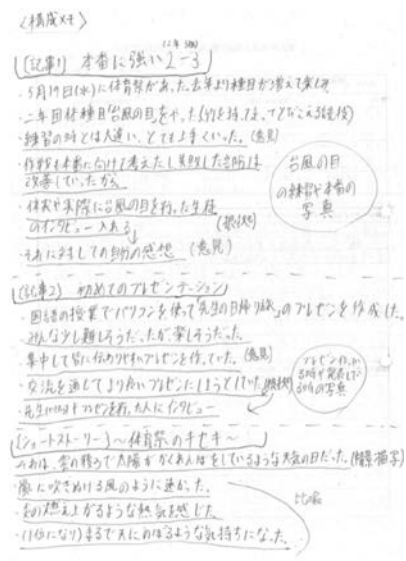 〈構成メモ〉
(2年3組)
(記事1) 本番に強い2-3
・5月19日(水)に体育祭があった。去年より種目が増えて楽しみ
・二年団体種目「台風の目」をやった(竹を持って走ってとびこえる競技)
・練習の時とは大違い、とても上手くいった。(意見)
・作戦を本番に向けて考えたし失敗した部所は
改善していったから
・体実や実際に台風の目を行った生徒
のインタビュー入れる (根拠)
・それに対しての自分の感想 (意見)
台風の目
の練習や本番の
写真
(記事2) 初めてのプレゼンテーション
・国語の授業でパソコンを使って「先生の日帰り旅」のプレゼンを作成した。
・みんな少し難しそうだったが楽しそうだった。
・集中して皆に伝わりやすいプレゼンを作っていた。(意見)
・交流を通じてより良いプレゼンにしようとしていた。(根拠)
・先生にインタビュー
プレゼン
写真
(ショートストーリー) ～体育祭のキセキ～
・雲の移ろで太陽がかくれんぼをしているような天気の日だった。(情景描写)
・嵐に吹きぬける風のように速かった。
・炎の燃え上がるような熱気を感じた。
・(1位になり)まるで天にのぼるような気持ちになった。
比喩